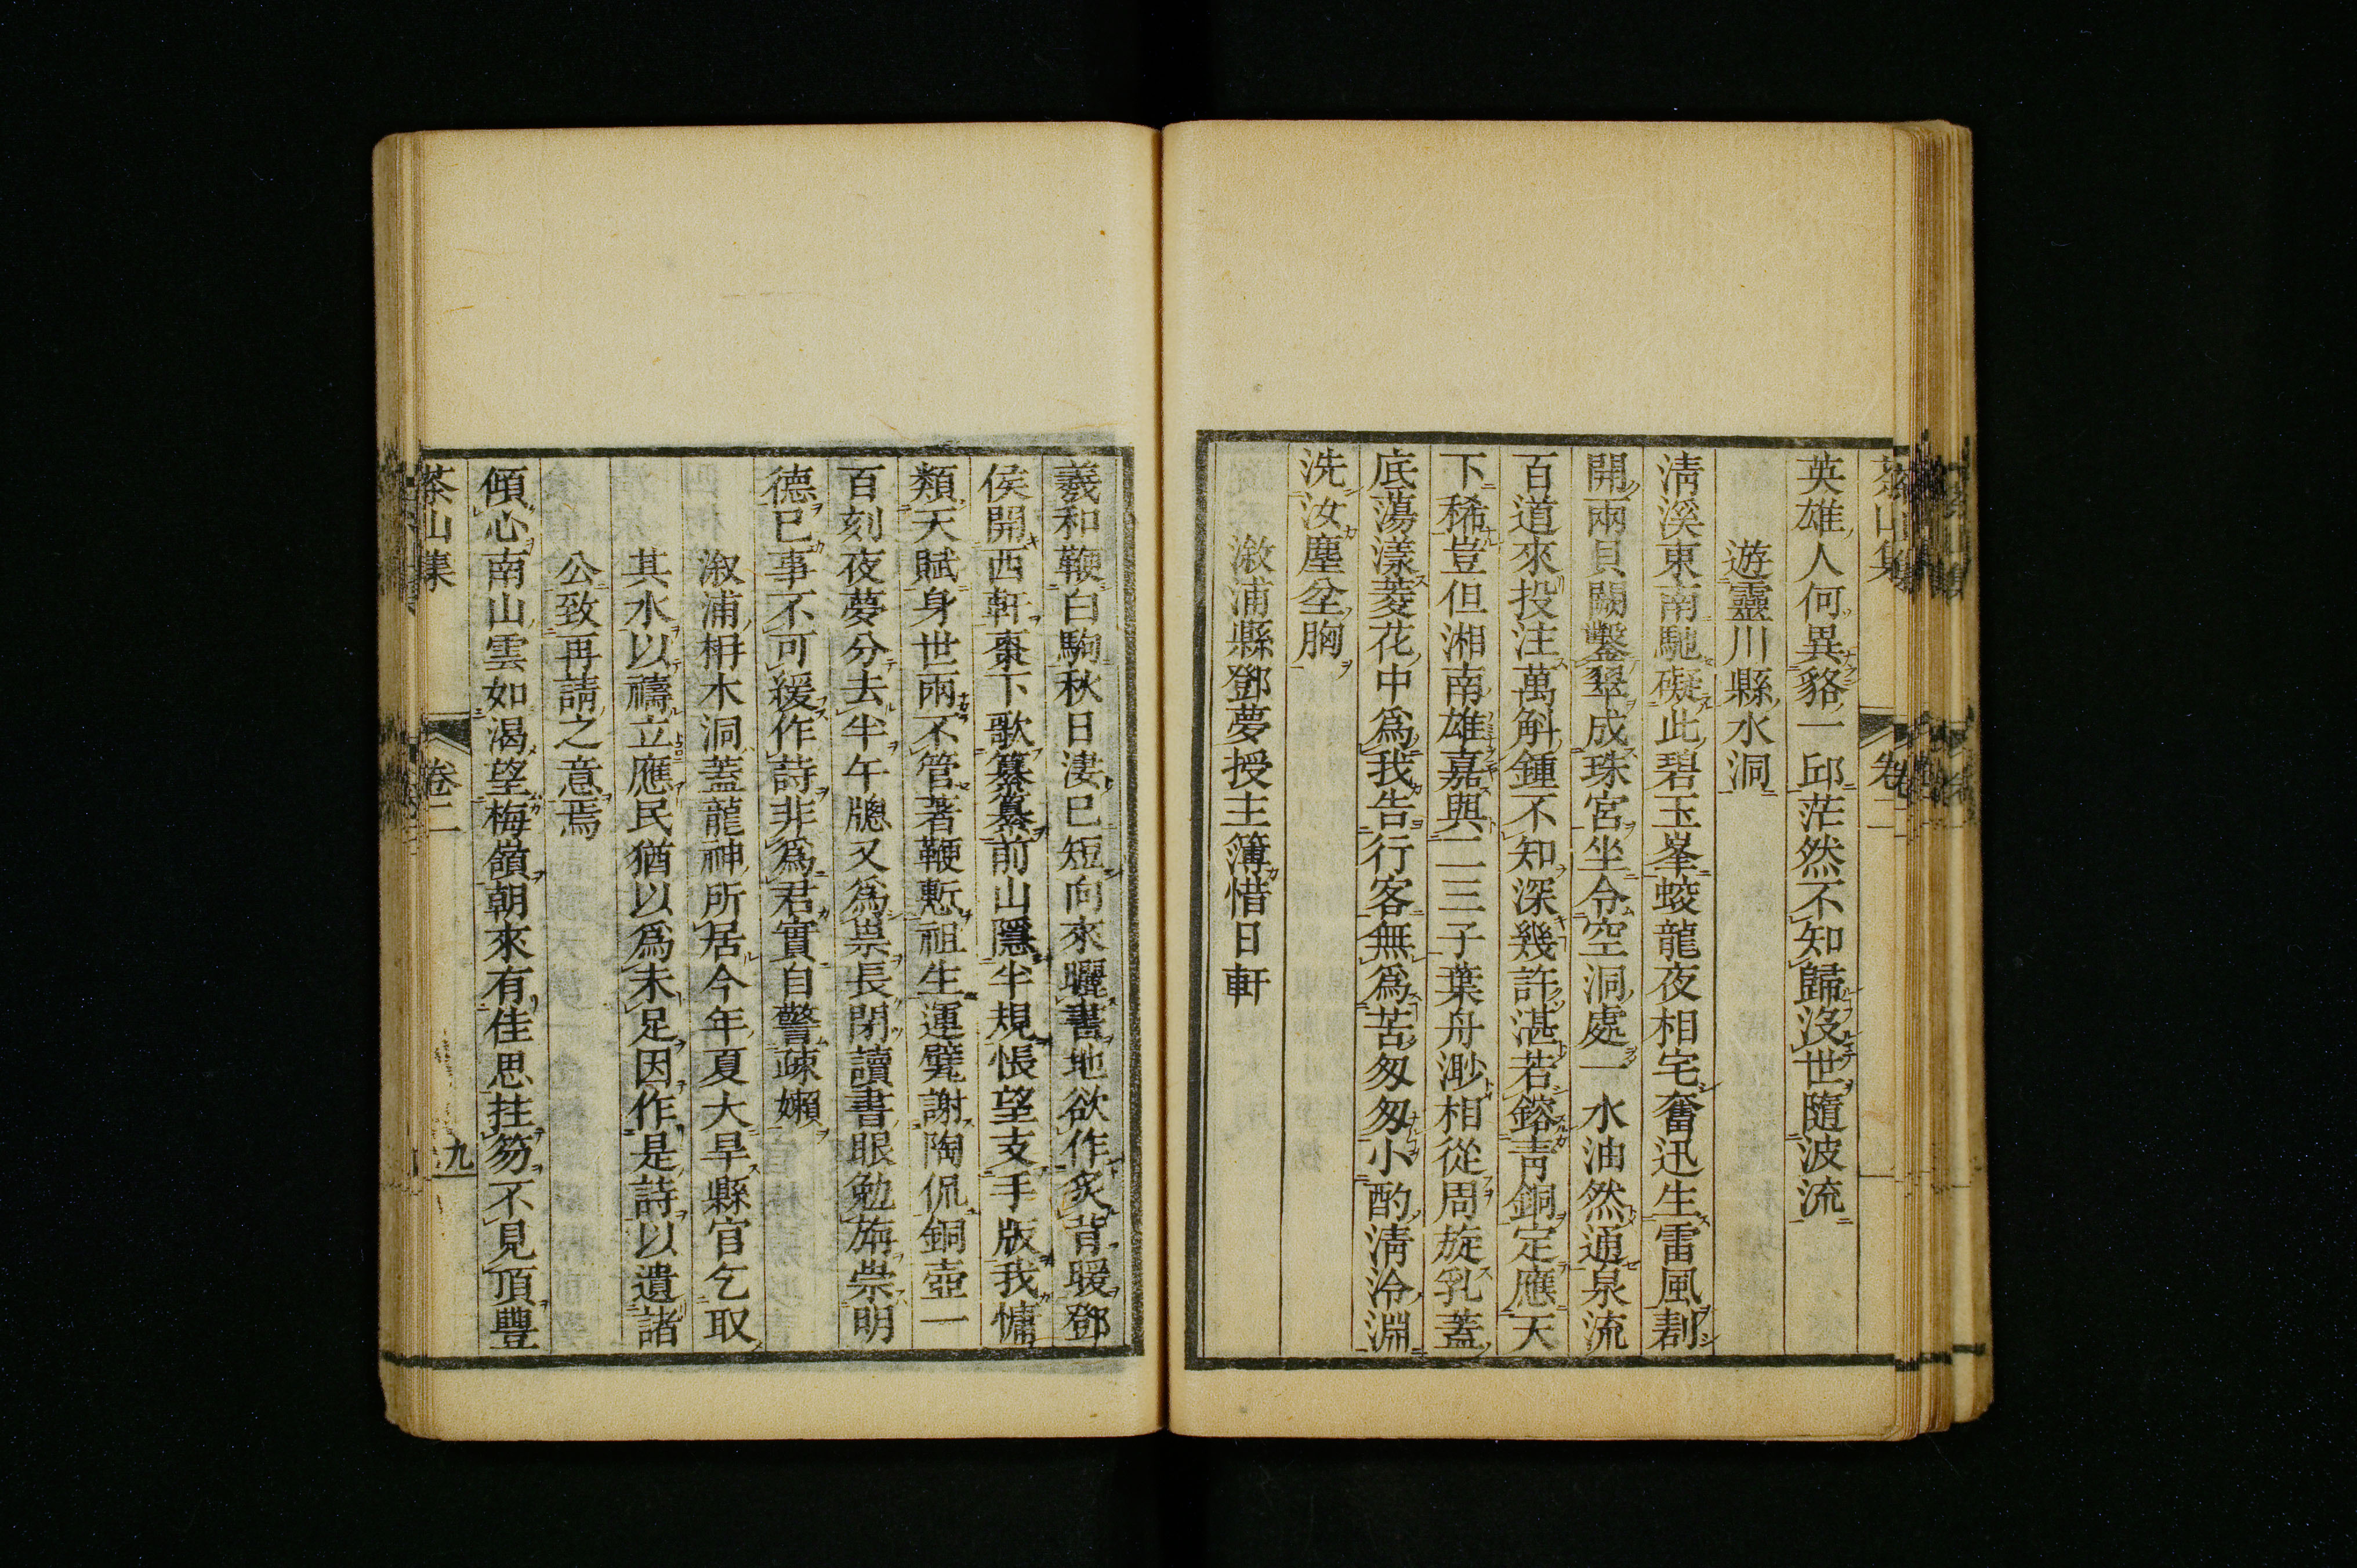 茶山集
英雄人何異貉一邱茫然不知歸沒世隨波流
遊靈川縣水洞
淸溪東南馳礙此碧玉峯蛟龍夜相宅奮迅生雷風劃
開兩貝闕鑿翠成珠宮坐令空洞處一水油然通泉流
百道來投注萬斛鍾不知深幾許湛若鎔靑銅定應天
下稀豈但湘南雄嘉與二三子葉舟渺相從周旋乳蓋
底蕩漾菱花中爲我告行客無爲苦匆匆小酌淸泠淵
洗汝塵坌胸
漵浦縣鄧夢授主簿惜日軒
羲和鞭白駒秋日淒已短向來曬書地欲作炙背暖鄧
侯開西軒棗下歌纂纂前山隱半規悵望支手版我慵
類天賦身世兩不管著鞭慙祖生運甓謝陶侃銅壺一
百刻夜夢分去半午牕又爲祟長閉讀書眼勉旃崇明
德已事不可緩作詩非爲君實自警疎嬾
漵浦枏木洞蓋龍神所居今年夏大旱縣官乞取
其水以禱立應民猶以爲未足因作是詩以遺諸
公致再請之意焉
傾心南山雲如渴望梅嶺朝來有佳思拄笏不見頂豐
茶山集
卷二
九